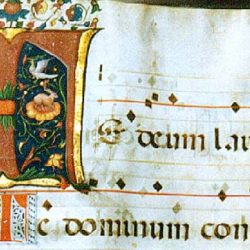 Te deum lau
Te dominum con